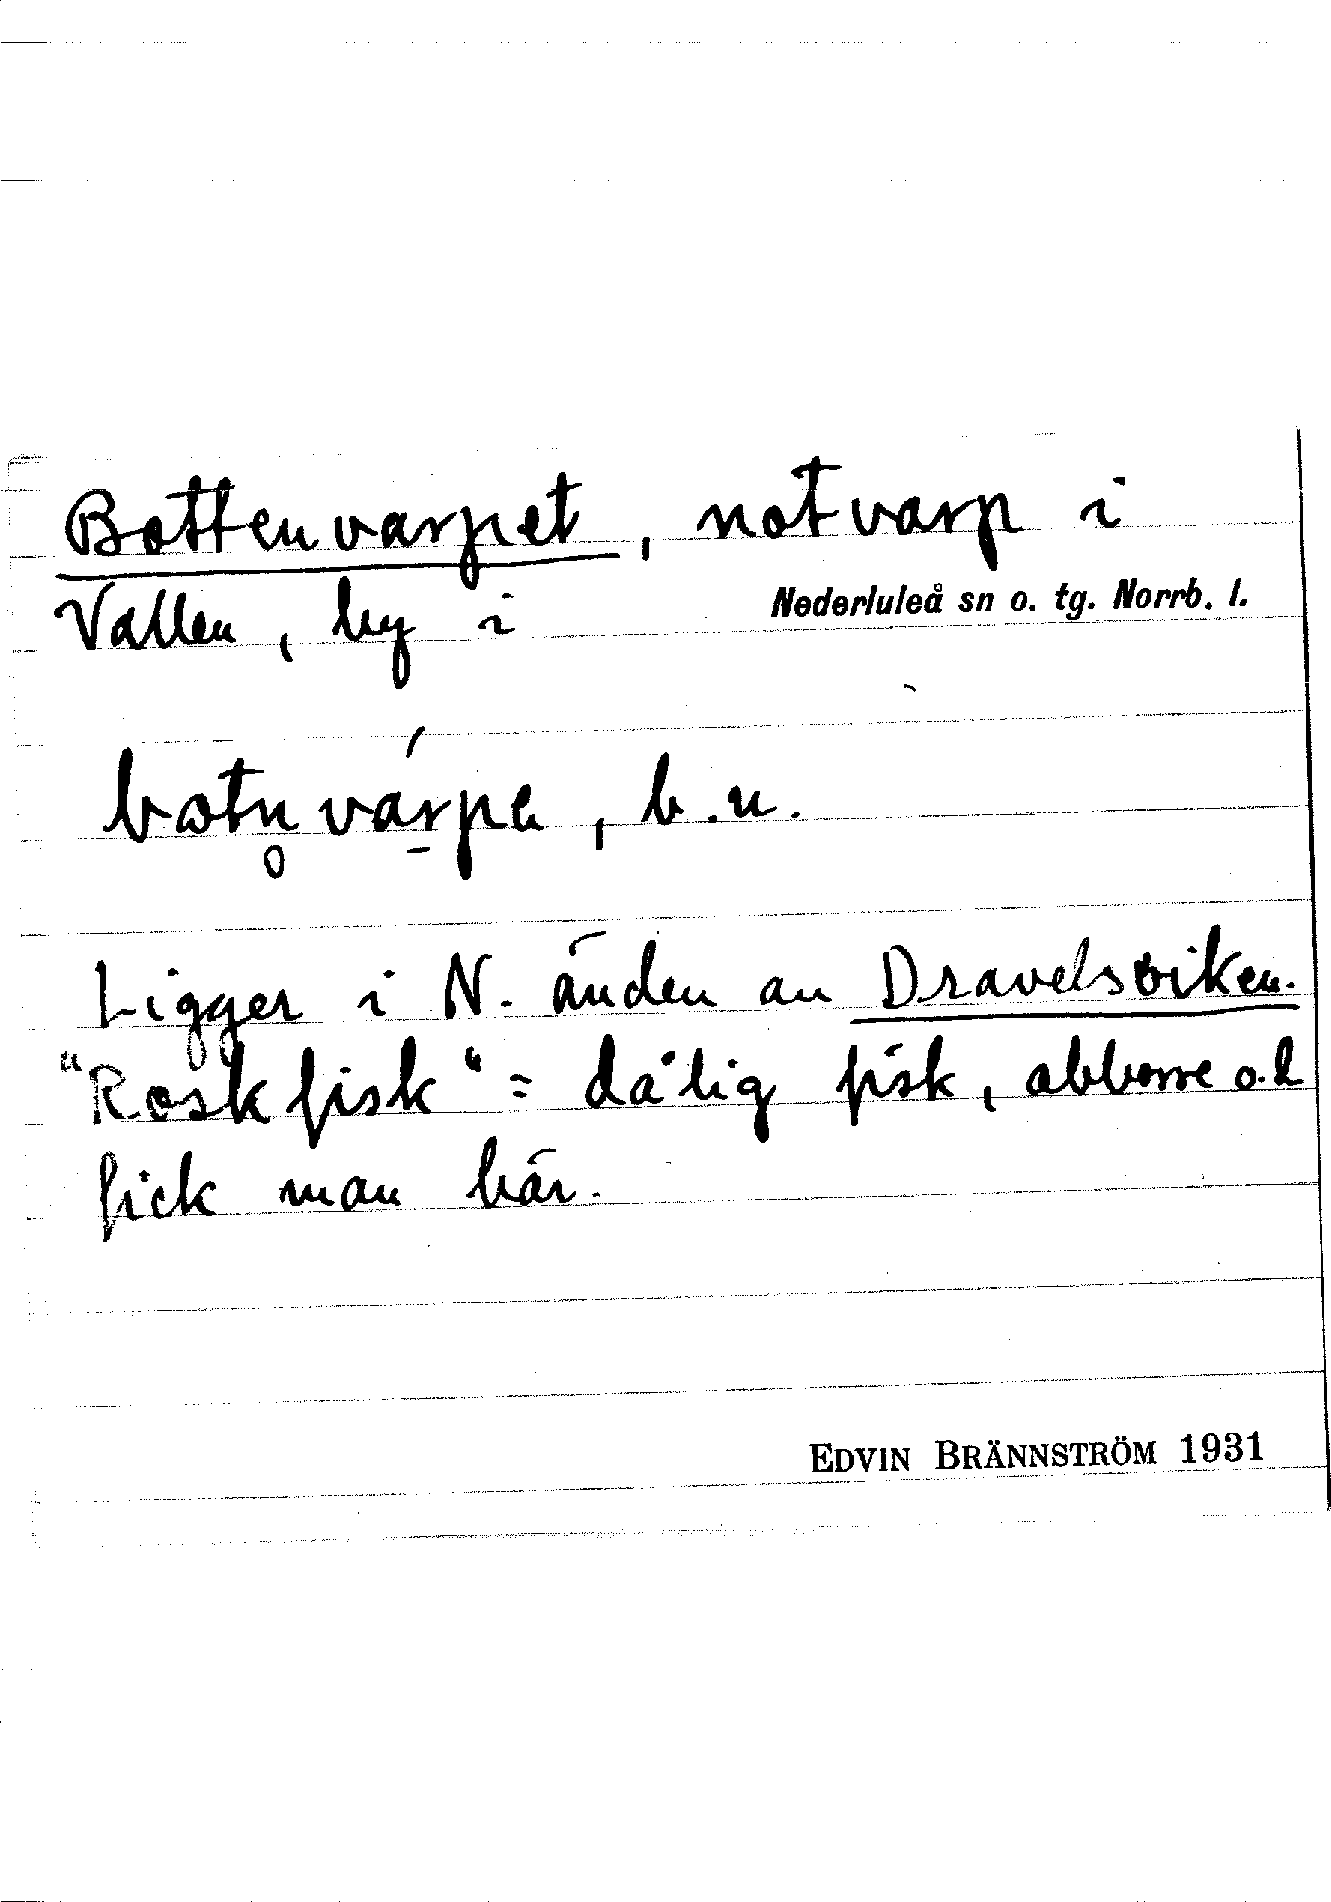 Bottenvarpet, notvarp i
Vallen, by i Nederluleå sn o. tg. Norrb. l.
botn̥vár̠pe, b.n.
Ligger i N. änden av Dravelsviken.
"Roskfisk" = dålig fisk, abborre o.d
fick man här.
EDVIN BRÄNNSTRÖM 1931